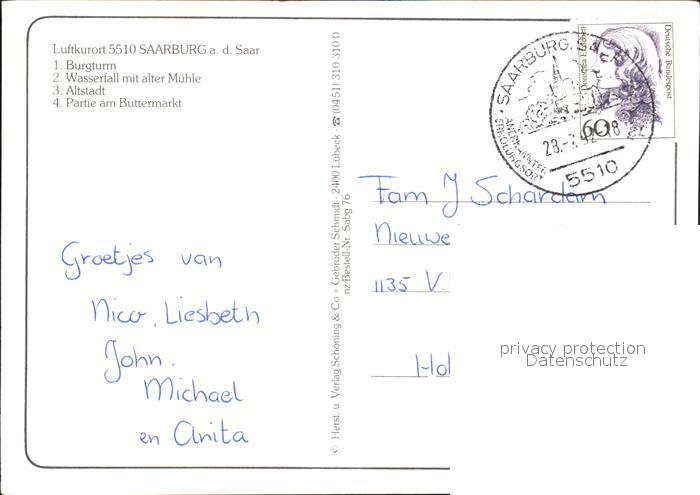 Luftkurort 5510 SAARBURG a. d. Saar
1. Burgturm
2. Wasserfall mit alter Mühle
3. Altstadt
4. Partie am Buttermarkt
Groetjes van
Nico, Liesbeth
John.
Michael
en Anita
© Herst. u. Verlag Schöning & Co + Gebrüder Schmidt · 2400 Lübeck · ☎ (0451) 310 310 0
nz Bestell-Nr. Sabg 76
SAARBURG, SAAR
ANERKANNTER
ERHOLUNGSORT
5510
Deutsche Bundespost
60
Fam J Schardam
Nieuwe
1135 V.
Hol
privacy protection
Datenschutz